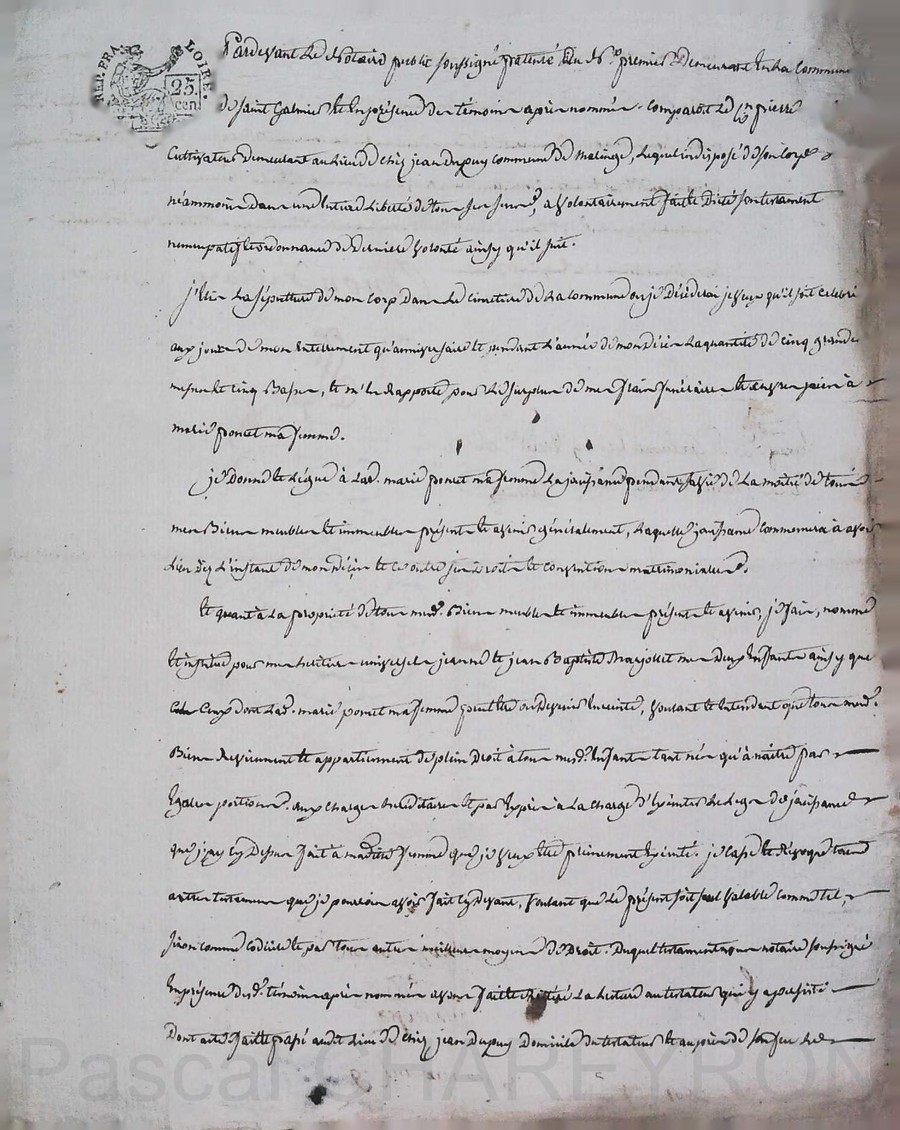 REP. FRA. LOIRE.
25
cen
Pardevant Le Notaire public soussigné patenté du N.º premier Demeurant En La Commune
de Saint Galmier Et En présence des témoins après nommés. comparoit Le C.en pierre
Cultivateur Demeurant au Lieu de chez jean Dupuy commune de Maringe, Lequel indisposé de son Corps
néammoins Dans une Entiere Liberté de tous ses sens, a volontairement fait et Dicté son testament
nuncupatif et ordonnance de Derniere volonté ainsy qu'il suit.
j'Elis La sépulture de mon Corp Dans Le cimetiere de La commune ou je Décéderai je veux qu'il soit célébré
aux jours de mon Enterrement qu'anniversaire et pendant L'année de mon Décès La quantité de cinq grandes
messes et cinq Basses, et m'En Rapporte pour Le surplus de mes frais funéraires et œuvres pies à
marie poncet ma femme.
je Donne et Légue à Lad. marie poncet ma femme La jouissance pendant sa vie de La moitié de tous
mes Biens meubles et immeubles présents et avenir généralement, Laquelle jouissance Commencera à avoir
Lieu Dez L'instant de mon Décès et ce outre ses Droits et conventions matrimoniales.
Et quant à La propriété de tous mesd. Biens meubles et immeubles présents et avenir, je fais, nomme
Et institue pour mes heritiers universels jeanne et jean Baptiste Marjollet mes Deux Enfants ainsy que
Ceux dont Lad. marie poncet ma femme peut être ou Devenir Enceinte, voulant et Entendant que tous mesd.
Biens Reviennent et appartiennent de plein Droit à tous mesd. Enfants tant nés qu'à naitre par
Egales portions. aux charges hereditaires et par Exprès à La charge d'Exécuter Le Legs de jouissance
que j'ay Cy Dessus fait à madite femme que je veux être pleinement Exécuté. je Casse et Révoque tous
autres testaments que je pourrois avoir fait Cy Devant, voulant que Le présent soit seul valable comme tel,
sinon comme codicile et par tous autres meilleurs moyens de Droit. Duquel testament nous notaire soussigné
En présence desd. témoins après nommés avons fait et Réitéré La Lecture au testateur qui y a persisté
Dont acte fait et passé audit Lieu de chez jean Dupuy Domicile du testateur et au joignant de son feu Le
Pascal CHAREYRON